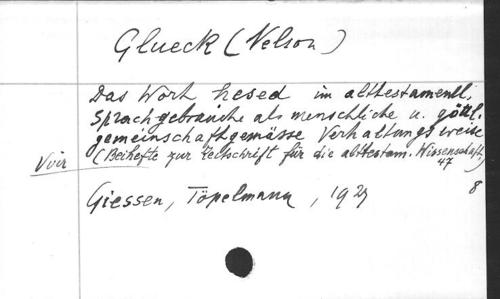 Glueck (Nelson)
Das Wort hesed im alttestamentl.
Sprachgebrauche als menschliche u. göttl.
gemeinschaftgemässe Verhaltungsweise
Voir (Beihefte zur Zeitschrift für die alttestam. Wissenschaft,
47
Giessen, Töpelmann, 1927 8